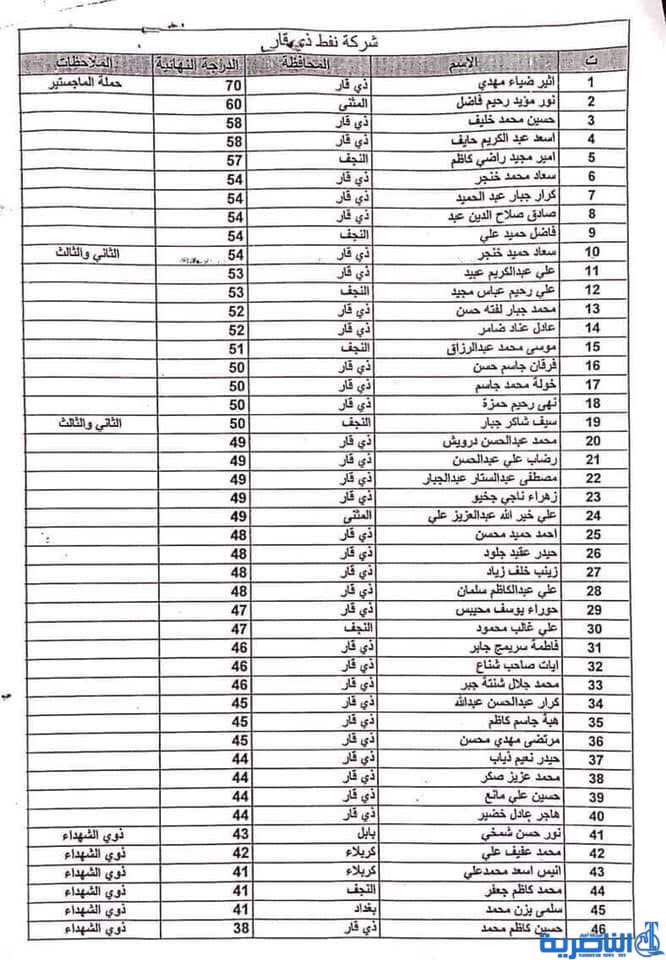 شركة نفط ذي قار
ت الاسم المحافظة الدرجة النهائية الملاحظات
1 اثير ضياء مهدي ذي قار 70 حملة الماجستير
2 نور مؤيد رحيم فاضل المثنى 60
3 حسين محمد خليف ذي قار 58
4 اسعد عبد الكريم حايف ذي قار 58
5 امير مجيد راضي كاظم النجف 57
6 سعاد محمد خنجر ذي قار 54
7 كرار جبار عبد الحميد ذي قار 54
8 صادق صلاح الدين عبد ذي قار 54
9 فاضل حميد علي النجف 54
10 سعاد حميد خنجر ذي قار 54 الثاني والثالث
11 علي عبدالكريم عبيد ذي قار 53
12 علي رحيم عباس مجيد النجف 53
13 محمد جبار لفته حسن ذي قار 52
14 عادل عناد ضامر ذي قار 52
15 موسى محمد عبدالرزاق النجف 51
16 فرقان جاسم حسن ذي قار 50
17 خولة محمد جاسم ذي قار 50
18 نهى رحيم حمزة ذي قار 50
19 سيف شاكر جبار النجف 50 الثاني والثالث
20 محمد عبدالحسن درويش ذي قار 49
21 رضاب علي عبدالحسن ذي قار 49
22 مصطفى عبدالستار عبدالجبار ذي قار 49
23 زهراء ناجي جخيو ذي قار 49
24 علي خير الله عبدالعزيز علي المثنى 49
25 احمد حميد محسن ذي قار 48
26 حيدر عقيد جلود ذي قار 48
27 زينب خلف زياد ذي قار 48
28 علي عبدالكاظم سلمان ذي قار 48
29 حوراء يوسف محيبس ذي قار 47
30 علي غالب محمود النجف 47
31 فاطمة سريمج جابر ذي قار 46
32 ايات صاحب شناع ذي قار 46
33 محمد جلال شنتة جبر ذي قار 46
34 كرار عبدالحسن عبدالله ذي قار 45
35 هبة جاسم كاظم ذي قار 45
36 مرتضى مهدي محسن ذي قار 45
37 حيدر نعيم ذياب ذي قار 44
38 محمد عزيز صكر ذي قار 44
39 حسين علي مانع ذي قار 44
40 هاجر عادل خضير ذي قار 44
41 نور حسن شمخي بابل 43 ذوي الشهداء
42 محمد عفيف علي كربلاء 42 ذوي الشهداء
43 انيس اسعد محمدعلي كربلاء 41 ذوي الشهداء
44 محمد كاظم جعفر النجف 41 ذوي الشهداء
45 سلمى يزن محمد بغداد 41 ذوي الشهداء
46 حسين كاظم محمد ذي قار 38 ذوي الشهداء
الناصرية
NASIRIYAH NEWS NET